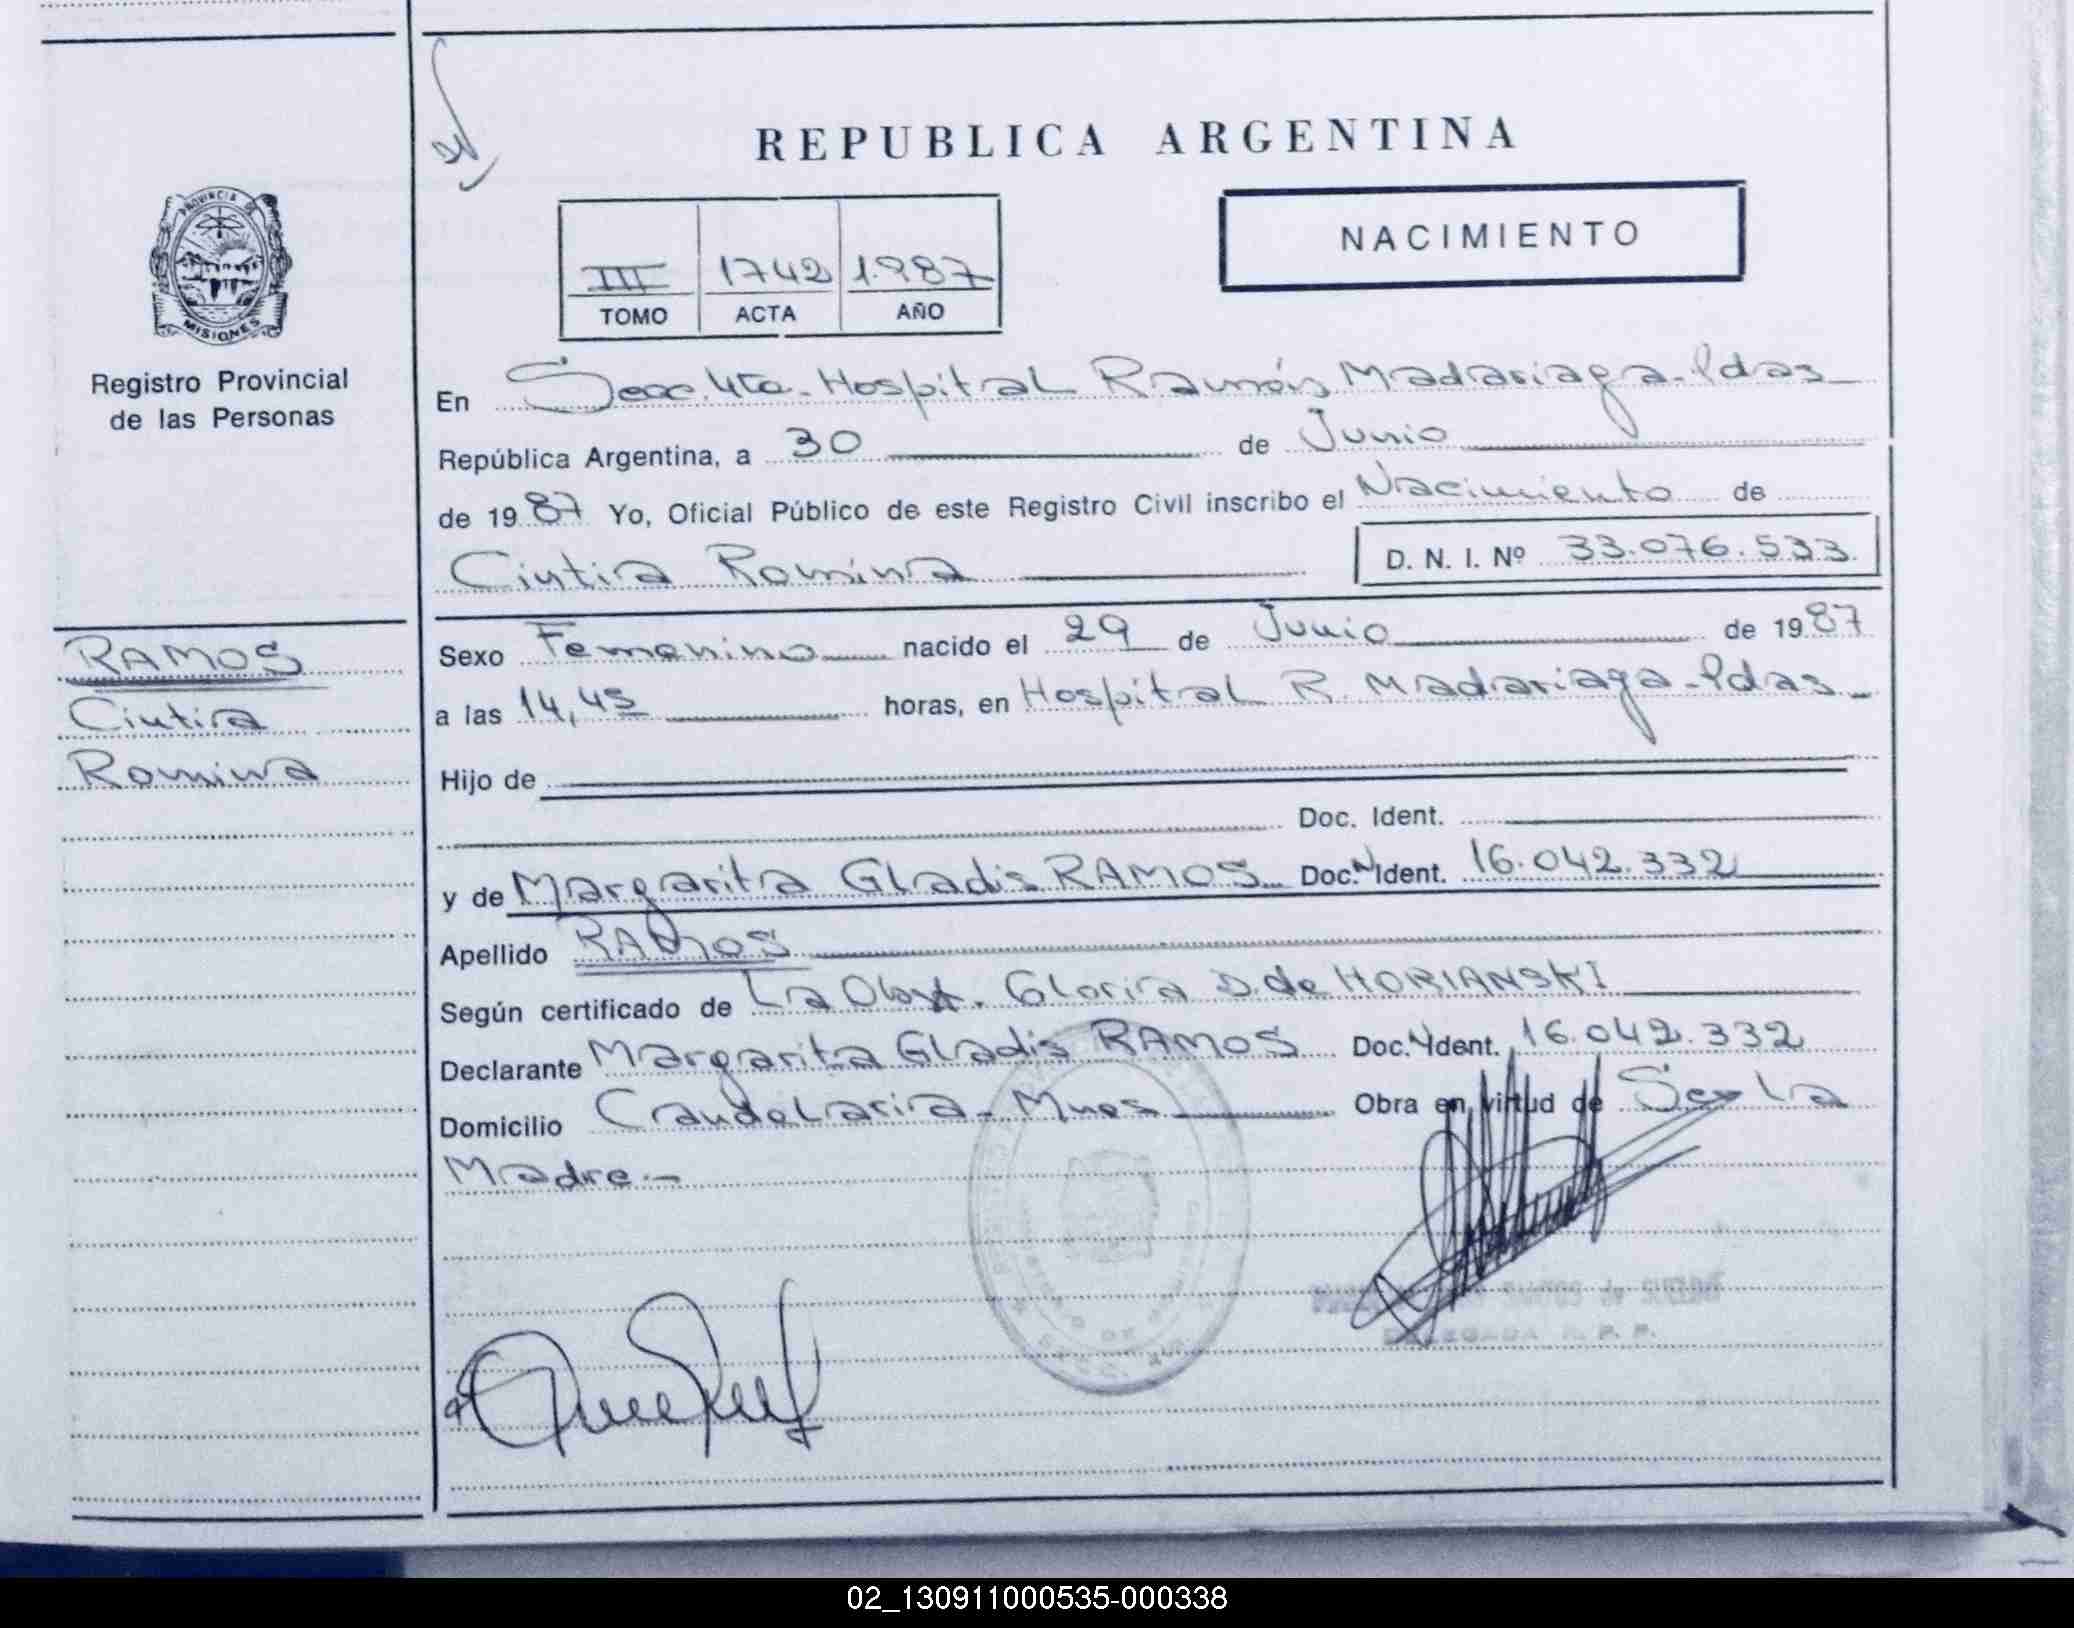 REPUBLICA ARGENTINA
PROVINCIA DE
MISIONES
Registro Provincial
de las Personas
III 1742 1.987
TOMO ACTA AÑO
NACIMIENTO
En Secc. 4ta. Hospital Ramón Madariaga - Pdas
República Argentina, a 30 de Junio
de 1987 Yo, Oficial Público de este Registro Civil inscribo el Nacimiento de
Cintia Romina D. N. I. Nº 33.076.533.
RAMOS
Cintia
Romina
Sexo Femenino nacido el 29 de Junio de 1987
a las 14,45 horas, en Hospital R. Madariaga - Pdas -
Hijo de
Doc. Ident.
y de Margarita Gladis RAMOS Doc. N Ident. 16.042.332
Apellido RAMOS
Según certificado de La Obst. Gloria D. de HORIANSKI
Declarante Margarita Gladis RAMOS Doc. Ident. 16.042.332
Domicilio Candelaria - Mnes Obra en virtud de Ser La
Madre.-
DELEGADA R. P. P.
02_130911000535-000338